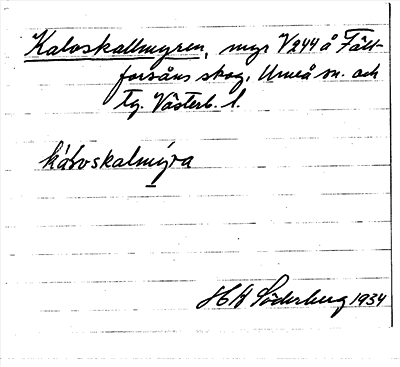 Kaloskallmyren, myr V 244 å Fält-
forsåns skog, Umeå sn. och
tg. Västerb. l.
káloskalmýra
H A Söderberg 1934